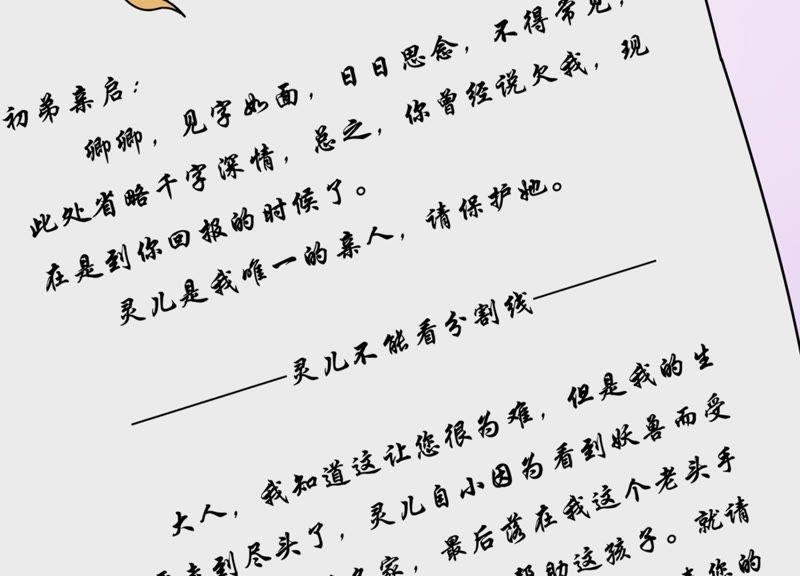 初弟亲启：
卿卿，见字如面，日日思念，不得常见，
此处省略千字深情，总之，你曾经说欠我，现
在是到你回报的时候了。
灵儿是我唯一的亲人，请保护她。
灵儿不能看分割线
大人，我知道这让您很为难，但是我的生
走到尽头了，灵儿自小因为看到妖兽而受
家，最后落在我这个老头手
帮助这孩子。就请
您的